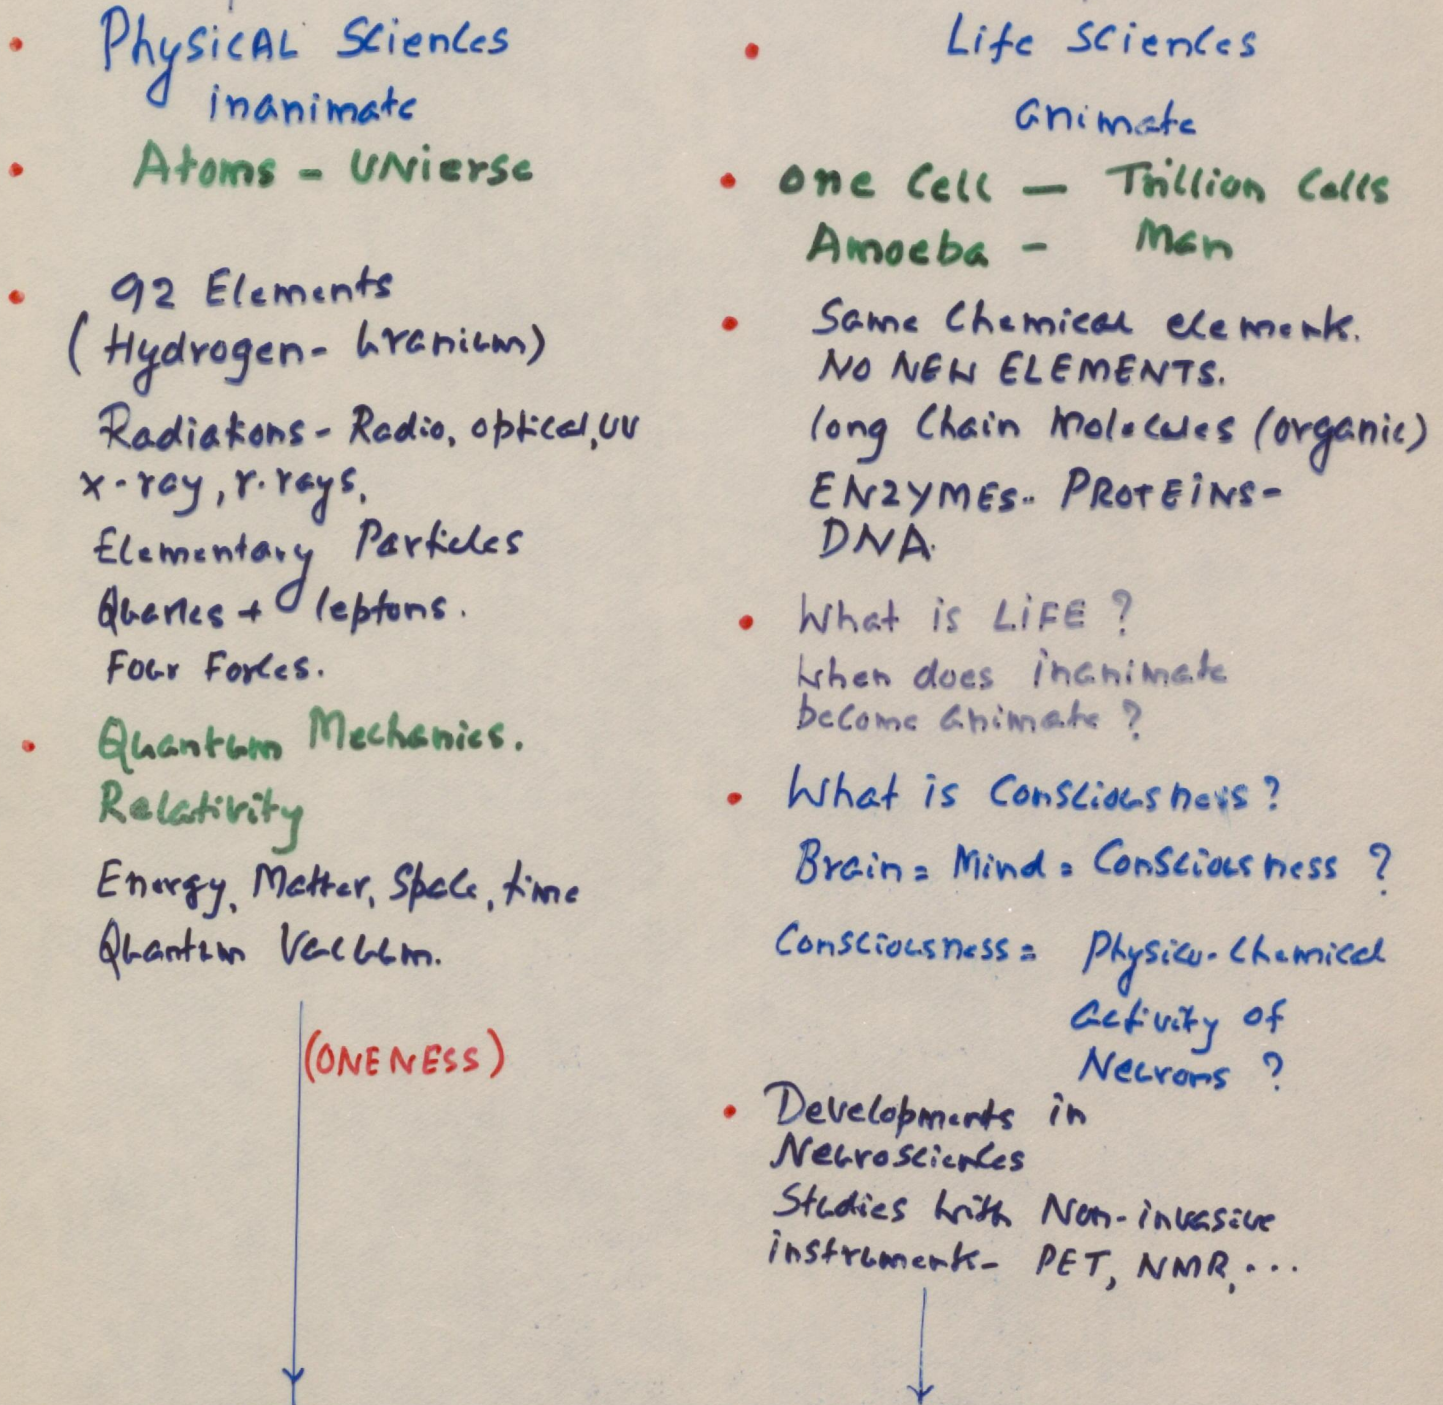 • Physical Sciences
inanimate
• Atoms - UNierse
• 92 Elements
(Hydrogen - Uranium)
Radiations - Radio, optical, UV
x-ray, r-rays,
Elementary Particles
Quarks + leptons.
Four Forces.
• Quantum Mechanics.
Relativity
Energy, Matter, Space, time
Quantum Vacuum.
(ONENESS)
• Life Sciences
animate
• One Cell — Trillion Cells
Amoeba - Man
• Same Chemical elements.
NO NEW ELEMENTS.
long Chain Molecules (organic)
ENZYMES.. PROTEINS-
DNA.
• What is LIFE ?
When does inanimate
become animate ?
• What is Consciousness ?
Brain = Mind = Consciousness ?
Consciousness = Physico-Chemical
activity of
Neurons ?
• Developments in
Neurosciences
Studies with Non-invasive
instruments - PET, NMR, ...